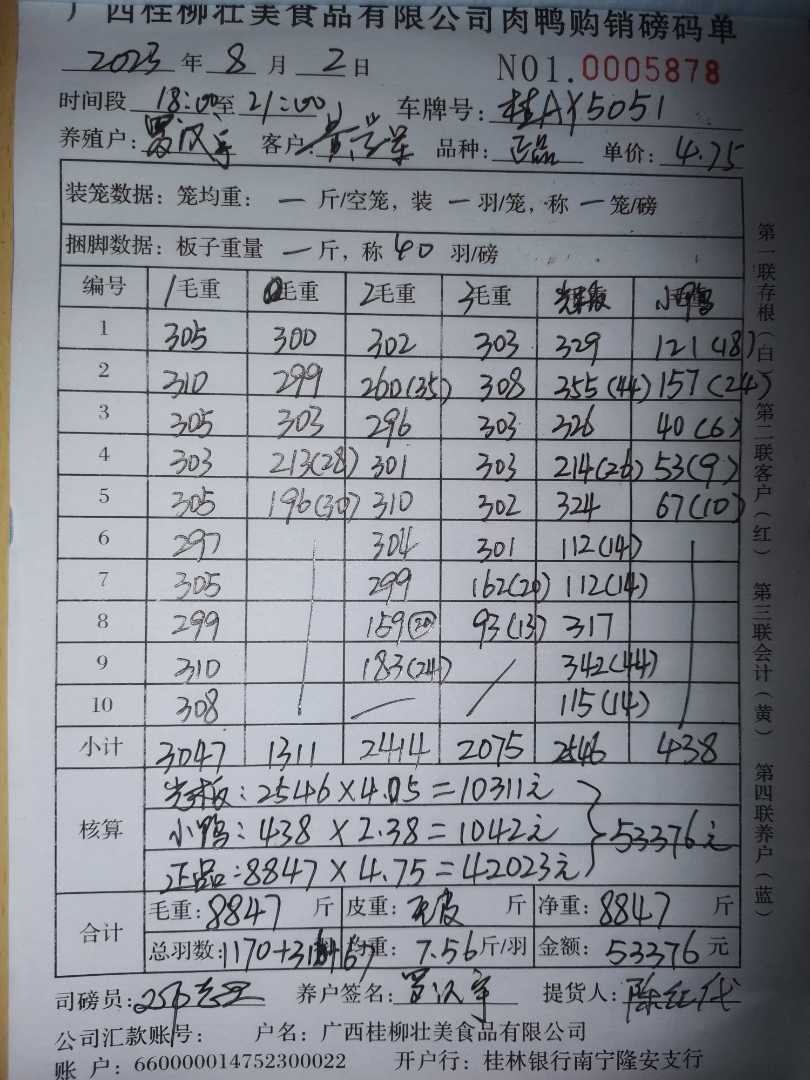 广西桂柳壮美食品有限公司肉鸭购销磅码单
2023 年 8 月 2 日 NO1.0005878
时间段 18:00至 21:00 车牌号: 桂AY5051
养殖户: 罗汉宇 客户: 品种: 正品 单价: 4.75
装笼数据: 笼均重: 一 斤/空笼, 装 一 羽/笼, 称 一 笼/磅
捆脚数据: 板子重量 一 斤, 称 40 羽/磅
编号 1毛重 毛重 2毛重 3毛重 小鸭
1 305 300 302 303 329 121(18)
2 310 299 260(35) 308 355(44) 157(24)
3 305 303 296 303 326 40(6)
4 303 213(28) 301 303 214(26) 53(9)
5 305 196(30) 310 302 324 67(10)
6 297 304 301 112(14)
7 305 299 162(20) 112(14)
8 299 159(20) 93(13) 317
9 310 183(24) 342(44)
10 308 115(14)
小计 3047 1311 2414 2075 2546 438
核算
光板: 2546×4.05=10311元
小鸭: 438×2.38=1042元 53376元
正品: 8847×4.75=42023元
合计 毛重: 8847 斤 皮重: 斤 净重: 8847 斤
总羽数: 1170+ +67 均重: 7.56 斤/羽 金额: 53376 元
司磅员: 养户签名: 罗汉宇 提货人:
公司汇款账号: 户名: 广西桂柳壮美食品有限公司
账 户: 660000014752300022 开户行: 桂林银行南宁隆安支行
第一联存根(白) 第二联客户(红) 第三联会计(黄) 第四联养户(蓝)